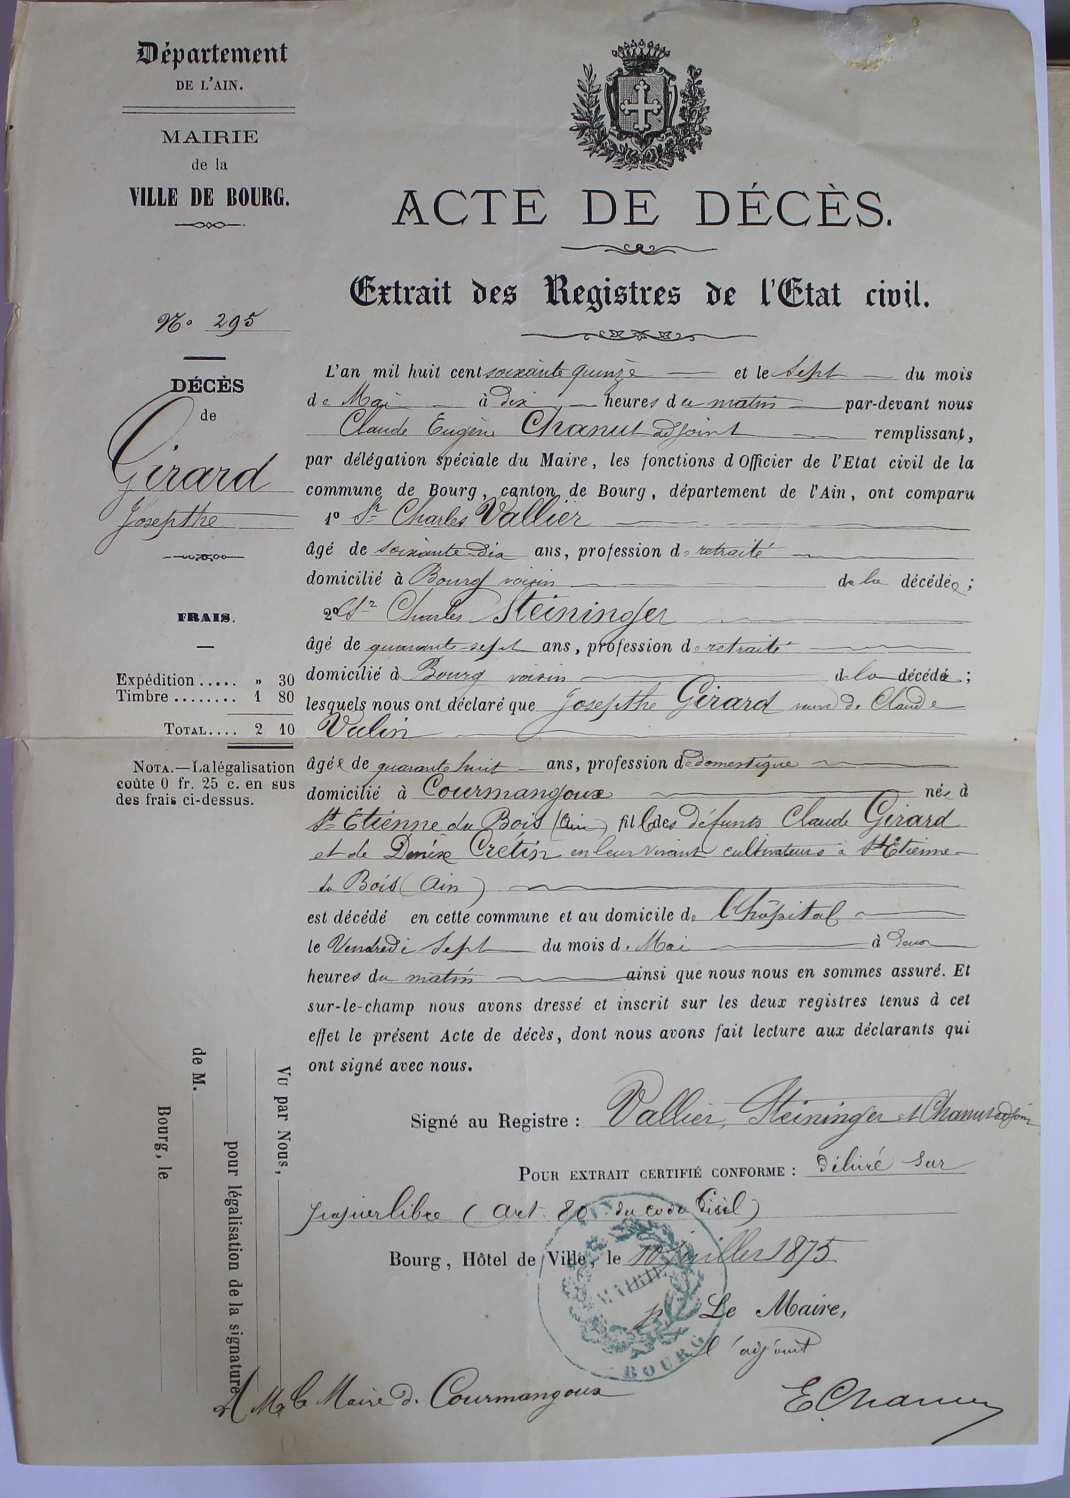 Département
DE L'AIN.
MAIRIE
de la
VILLE DE BOURG.
ACTE DE DÉCÈS.
Extrait des Registres de l'Etat civil.
No 295
DÉCÈS
de
Girard
Josepthe
FRAIS.
Expédition..... " 30
Timbre........ 1 80
TOTAL.... 2 10
NOTA.—La légalisation
coûte 0 fr. 25 c. en sus
des frais ci-dessus.
L'an mil huit cent soixante quinze et le sept du mois
de Mai à dix heures du matin par-devant nous
Claude Eugène Chanut adjoint remplissant,
par délégation spéciale du Maire, les fonctions d'Officier de l'Etat civil de la
commune de Bourg, canton de Bourg, département de l'Ain, ont comparu
1º Sr Charles Vallier
âgé de soixante-dix ans, profession de retraité
domicilié à Bourg voisin de la décédée;
2º Sr Charles Steininger
âgé de quarante-sept ans, profession de retraité
domicilié à Bourg voisin de la décédée;
lesquels nous ont déclaré que Josepthe Girard veuve de Claude
Vulin
âgée de quarante huit ans, profession de domestique
domicilié à Courmangoux née à
St Etienne du Bois (Ain) fille des défunts Claude Girard
et de Denise Crétin en leur vivant cultivateurs à St Etienne
du Bois (Ain)
est décédé en cette commune et au domicile de l'hôpital
le Vendredi sept du mois de Mai à deux
heures du matin ainsi que nous nous en sommes assuré. Et
sur-le-champ nous avons dressé et inscrit sur les deux registres tenus à cet
effet le présent Acte de décès, dont nous avons fait lecture aux déclarants qui
ont signé avec nous.
Signé au Registre : Vallier, Steininger et Chanut adjoint
POUR EXTRAIT CERTIFIÉ CONFORME : délivré sur
papier libre (art. 80 du code Civil)
Bourg, Hôtel de Ville, le 10 juillet 1875
p. Le Maire,
l'adjoint
E. Chanut
MAIRIE
BOURG
Vu par Nous,
pour légalisation de la signature
de M.
Bourg, le
A Mr le Maire de Courmangoux